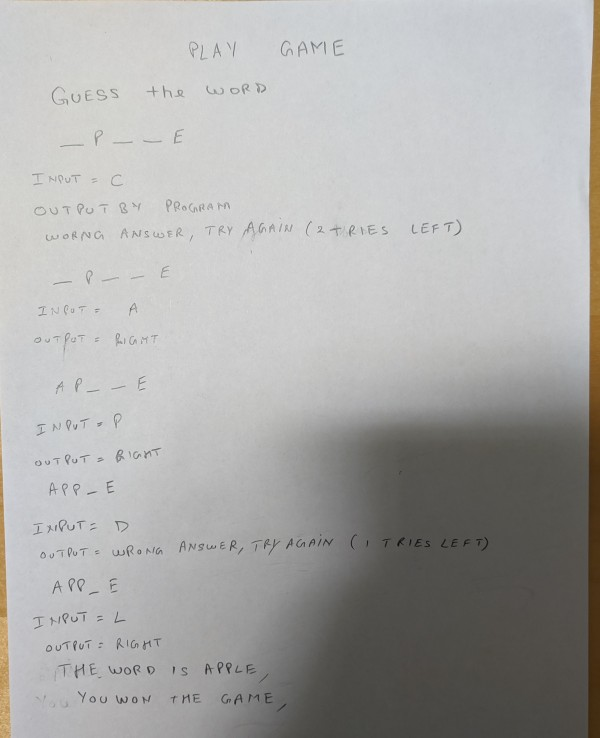 PLAY GAME
GUESS the WORD
_ P _ _ E
INPUT = C
OUTPUT BY PROGRAM
WORNG ANSWER, TRY AGAIN (2 TRIES LEFT)
_ P _ _ E
INPUT = A
OUTPUT = RIGHT
A P _ _ E
INPUT = P
OUTPUT = RIGHT
APP _ E
INPUT = D
OUTPUT = WRONG ANSWER, TRY AGAIN (1 TRIES LEFT)
APP _ E
INPUT = L
OUTPUT = RIGHT
THE WORD IS APPLE,
You YOU WON THE GAME,